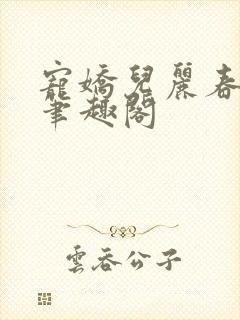 寵嬌兒麗春
筆趣閣
雲吞公子